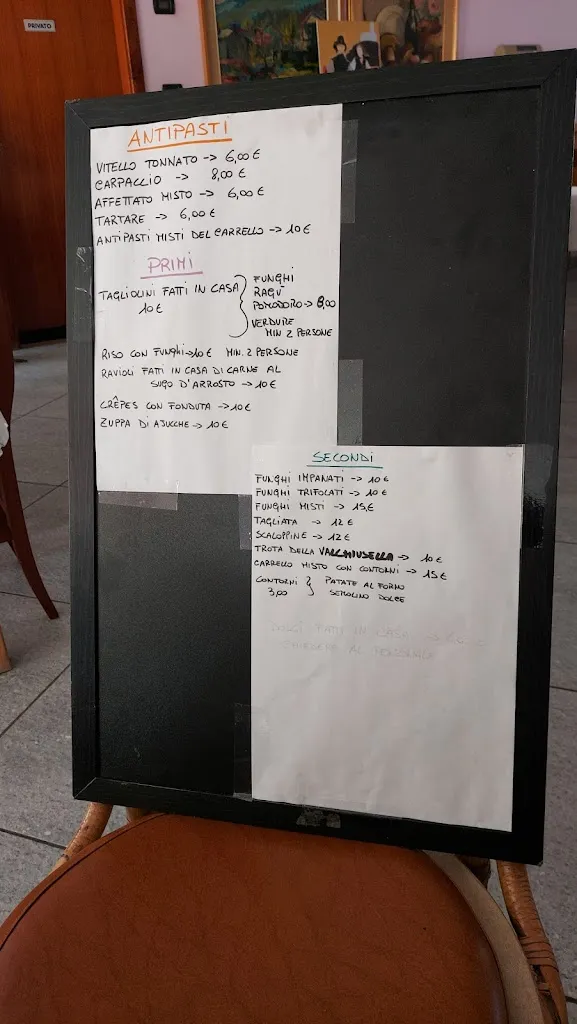 PRIVATO
ANTIPASTI
VITELLO TONNATO -> 6,00 €
CARPACCIO -> 8,00 €
AFFETTATO MISTO -> 6,00 €
TARTARE -> 6,00 €
ANTIPASTI MISTI DEL CARRELLO -> 10 €
PRIMI
TAGLIOLINI FATTI IN CASA
10 €
FUNGHI
RAGÙ
POMODORO -> 8,00
VERDURE
MIN 2 PERSONE
RISO CON FUNGHI -> 10 € MIN. 2 PERSONE
RAVIOLI FATTI IN CASA DI CARNE AL
SUGO D'ARROSTO -> 10 €
CRÊPES CON FONDUTA -> 10 €
ZUPPA DI AJUCCHE -> 10 €
SECONDI
FUNGHI IMPANATI -> 10 €
FUNGHI TRIFOLATI -> 10 €
FUNGHI MISTI -> 15 €
TAGLIATA -> 12 €
SCALOPPINE -> 12 €
TROTA DELLA VALCHIUSELLA -> 10 €
CARRELLO MISTO CON CONTORNI -> 15 €
CONTORNI } PATATE AL FORNO
3,00 SEMOLINO DOLCE
DOLCI FATTI IN CASA ->